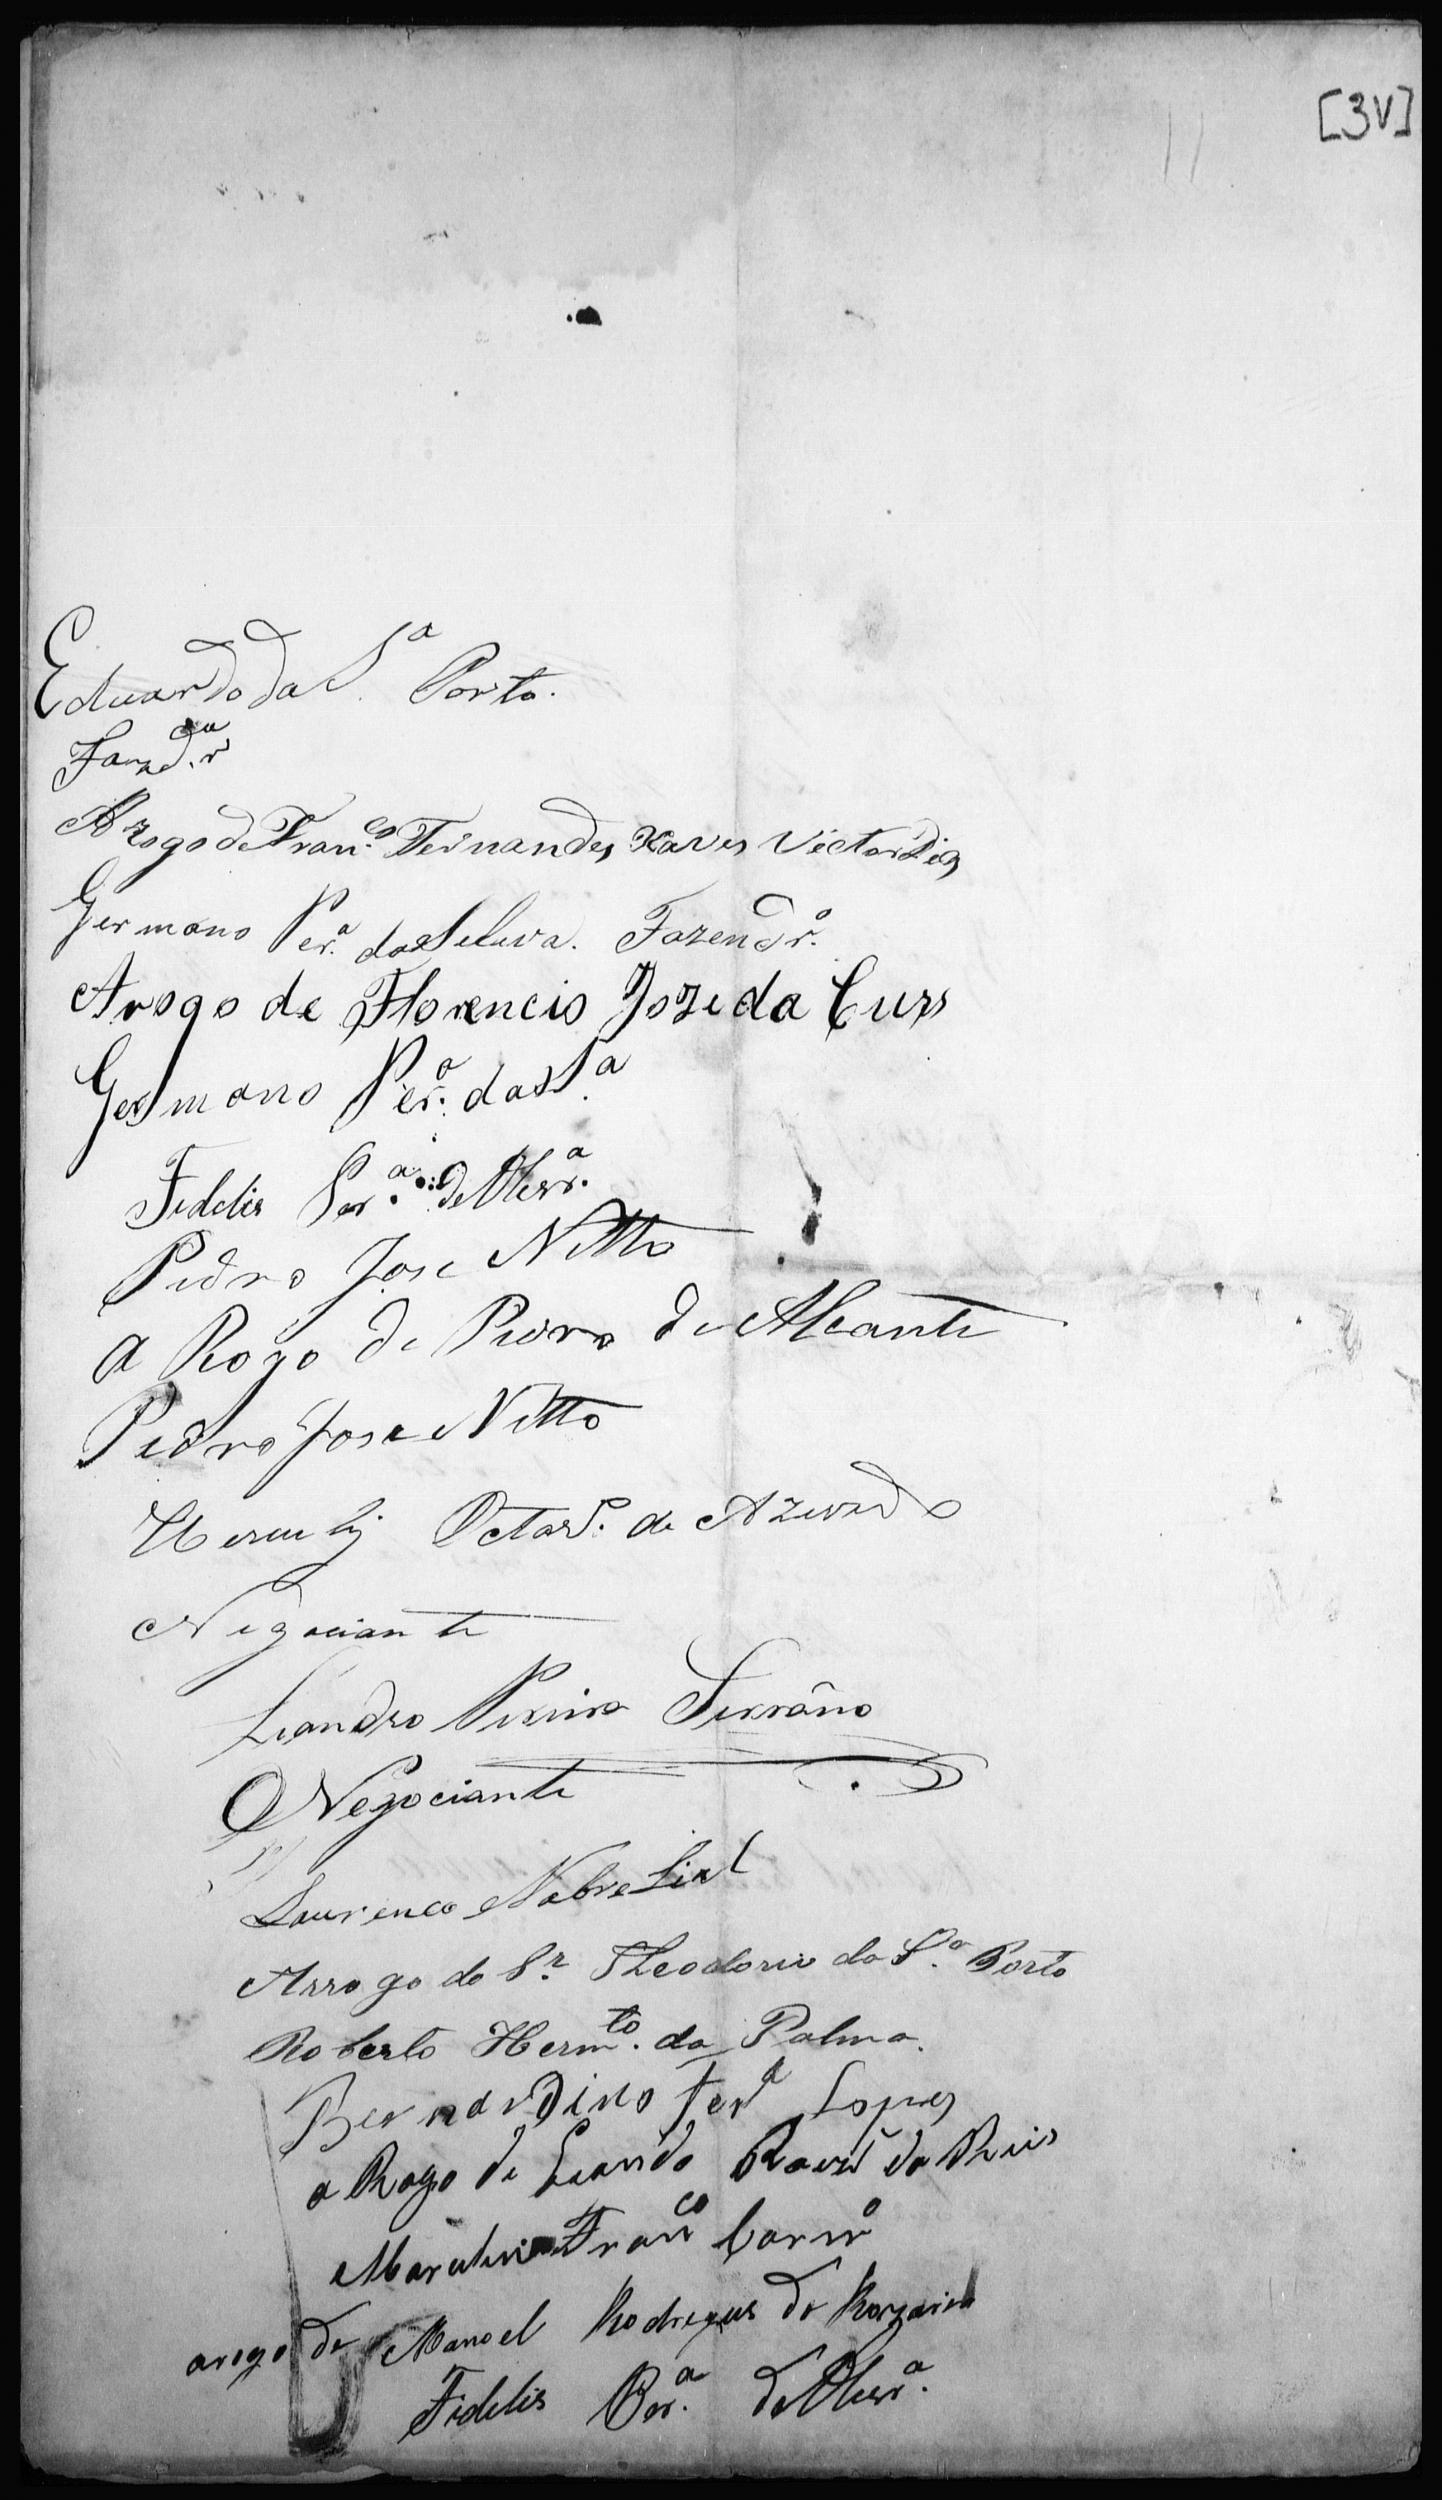 [3V]
Eduardo da S.ª Porto.
Fazd.ra
A rogo de Fran.co Fernandes Xaves Victor Dias
Germano Per.ª da Seluva. Fazendr.º
Arogo de Florencio Joze da Curs
Germano Per.ª da S.ª
Fidelis Per.ª de Olivr.ª
Pedro Jose Netto
A Rogo de Pedro de Alcante
Pedro Jose Netto
Herculis de Azevedo
Negociante
Leandro Pereira Serrano
O Negociante
Lourenco Nobre Lial
Arrogo do Sr. Theodorio da S.ª Porto
Roberto Herm.to da Palma.
Bernardino Ferª Lopes
a Rogo de Leandro do Reis
Franco
arogo de Manoel Rodregues do Rorzario
Fidelis Per.ª de Olivr.ª